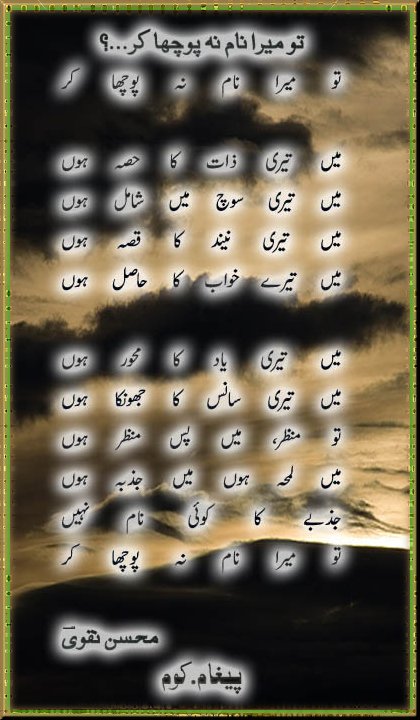 تو میرا نام نہ پوچھا کر...؟
تو میرا نام نہ پوچھا کر
میں تیری ذات کا حصہ ہوں
میں تیری سوچ میں شامل ہوں
میں تیری نیند کا قصہ ہوں
میں تیرے خواب کا حاصل ہوں
میں تیری یاد کا محور ہوں
میں تیری سانس کا جھونکا ہوں
تو منظر، میں پس منظر ہوں
میں لمحہ ہوں میں جذبہ ہوں
جذبے کا کوئی نام نہیں
تو میرا نام نہ پوچھا کر
محسن نقویؔ
پیغام.کوم